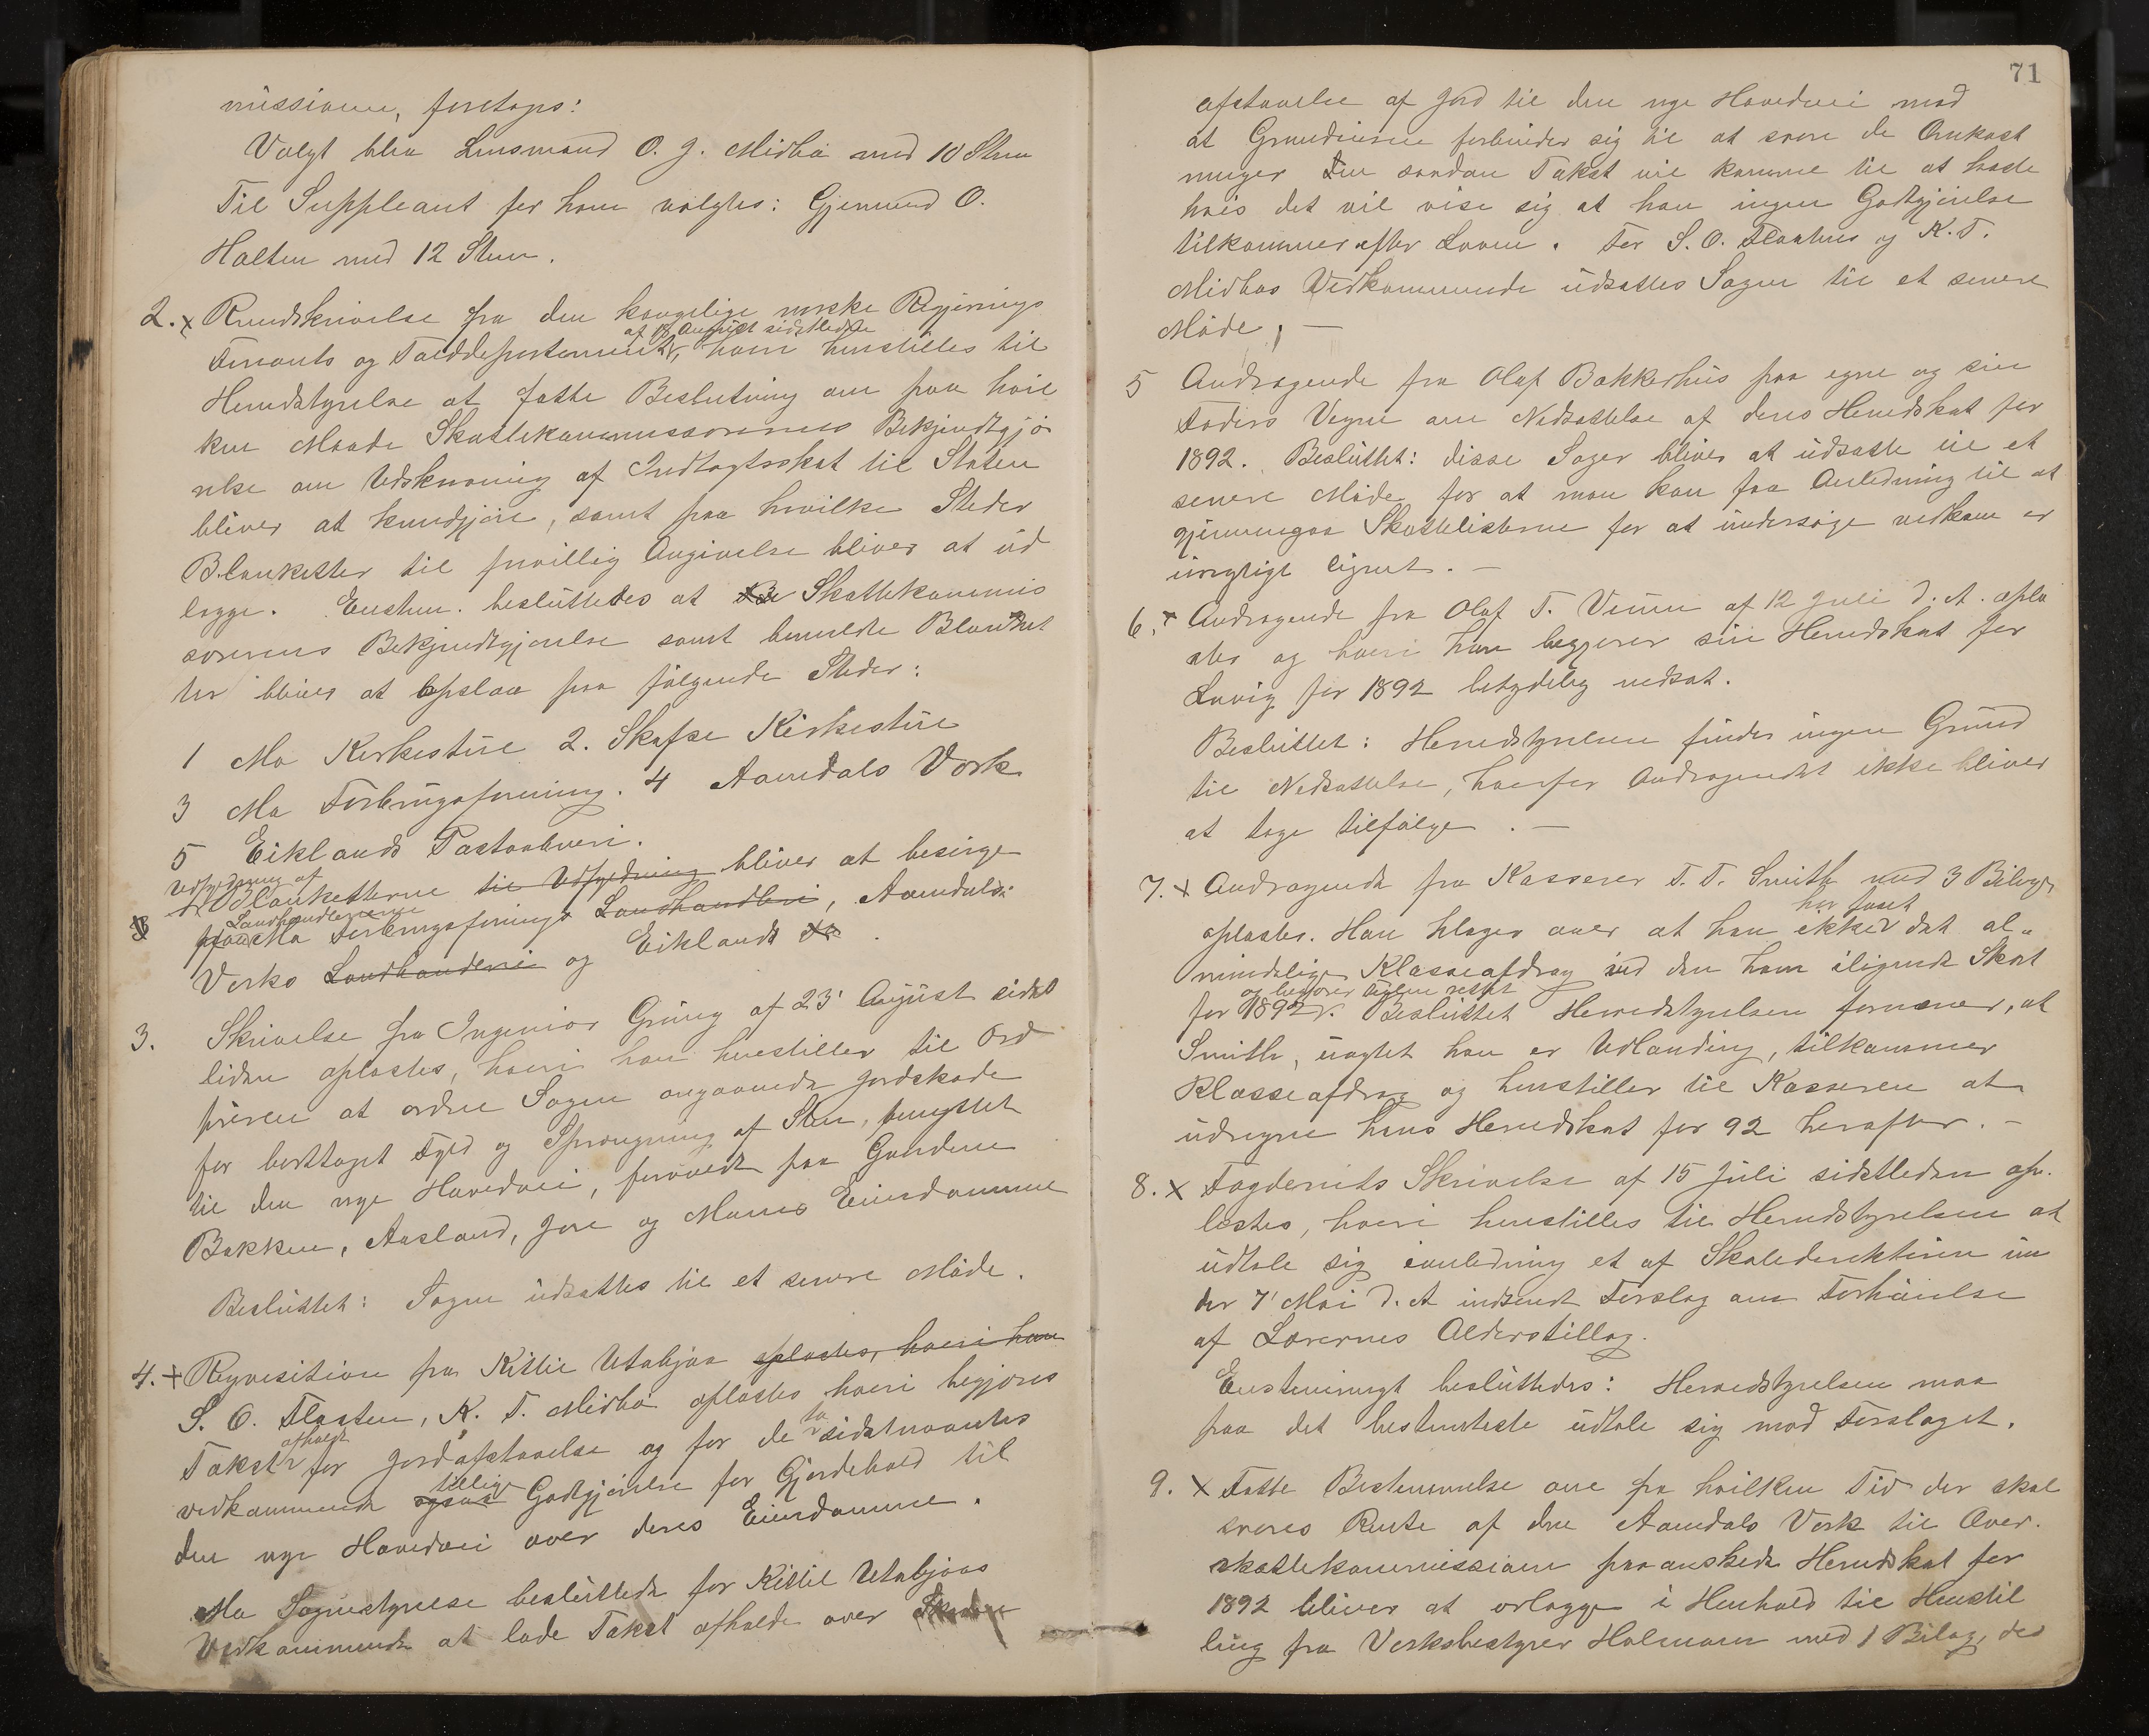 missionen, foretoges:
Valgt blev Lensmand O. J. Midbø med 10 Stem
Til Suppleant for ham valgtes: Gjermund O.
Holten med 12 Stem.
2. x Rundskrivelse fra den kongelige norske Regjerings
af 18 August sidstledne
Finants og Tolddepartement, hvori henstilles til
Heredstyrelse at fatte Beslutning om paa hvil
ken Maade Skattekommissionens Bekjendtgjø
relse om Udskrivning af Indtægtsskat til Staten
bliver at kundgjøre, samt paa hvilke Steder
Blanketter til frivillig Angivelse bliver at ud
lægge. Enstem. besluttedes at Skattekommis
sionens Bekjendtgjørelse samt bemeldte Blanket
ter bliver at opslaa paa følgende Steder:
1 Mo Kirkestue 2. Skafse Kirkestue
3 Mo Forbrugsforening. 4 Aamdals Værk
5 Eiklands Postaabneri.
Udfyldning af
Blanketterne til Udfyldning bliver at besørge
Landhandlerierne
paa Mo Forbrugsforenings Landhandleri, Aamdals
Verks Landhandleri og Eiklands
3. Skrivelse fra Ingeniør Grüng af 23' August sidst
leden oplæstes, hvori han henstiller til Ord
føreren at ordne Sagen angaaende Jordskade
for borttaget Fyld og Sprængning af Sten, benyttet
til den nye Hovedvei, forøvedt paa Gaardene
Bakken, Aasland, Jore og Moens Eiendomme
Besluttet: Sagen udsættes til et senere Møde.
4. + Reqvisition fra Kittil Utabjaa oplæstes, hvori han
S. O. Flaaten, K. T. Midbø oplæstes hvori begjæres
afholdt
to
Takst for Jordafstaaelse og for de sidstnævntes
tillige
vedkommende ogsaa Godtgjørelse for Gjerdehold til
den nye Hovedvei over deres Eiendomme.
Mo Sognestyrelse besluttede for Kittil Utabjaas
Vedkommende at lade Takst afholde over
71
afstaaelse af Jord til den nye Hovedvei mod
at Grundeieren forbinder sig til at svare de Omkost
ninger den saadan Takst vil komme til at koste
hvis det vil vise sig at han ingen Godtgjørelse
tilkommer efter Loven. For S. O. Flaatens og K. T.
Midbøs Vedkommende udsættes Sagen til et senere
Møde. —
5 Andragende fra Olaf Bakkerhus paa egne og sin
Faders Vegne om Nedsættelse af deres Heredskat for
1892. Besluttet: disse Sager bliver at udsætte til et
senere Møde for at man kan faa Anledning til at
gjennemgaa Skattelisterne for at undersøge vedkom er
urigtigt lignet. —
6. + Andragende fra Olaf T. Veum af 12 Juli d. A. oplæ
stes og hvori han begjærer sin Heredskat for
Lavig for 1892 betydelig nedsat.
Besluttet: Heredstyrelsen finder ingen Grund
til Nedsættelse, hvorfor Andragendet ikke bliver
at tage tilfølge. —
7. x Andragende fra Kasserer T. T. Smith med 3 Bilage
har faaet
oplæstes. Han klager over at han ikke det al-
mindelige Klasseafdrag ved den ham ilignede Skat
og begjærer Feilen rettet
for 1892. Besluttet Heredstyrelsen formener, at
Smith, uagtet han er Udlænding, tilkommer
Klasseafdrag og henstiller til Kasseren at
udregne hans Heredskat for 92 herefter. —
8. x Fogderiets Skrivelse af 15 Juli sidstleden op-
læstes, hvori henstilles til Heredstyrelsen at
udtale sig ianledning et af Skoledirektøren un
der 7' Mai d. A indsendt Forslag om Forhøielse
af Lærernes Alderstillæg.
Enstemmigt besluttedes: Heredstyrelsen maa
paa det bestemteste udtale sig mod Forslaget.
9. x Fatte Bestemmelse om fra hvilken Tid der skal
svares Rente af den Aamdals Værk til Over-
skattekommissionen paaankede Heredskat for
1892 bliver at erlægge i Henhold til Henstil
ling fra Verksbestyrer Holmsen med 1 Bilag, des